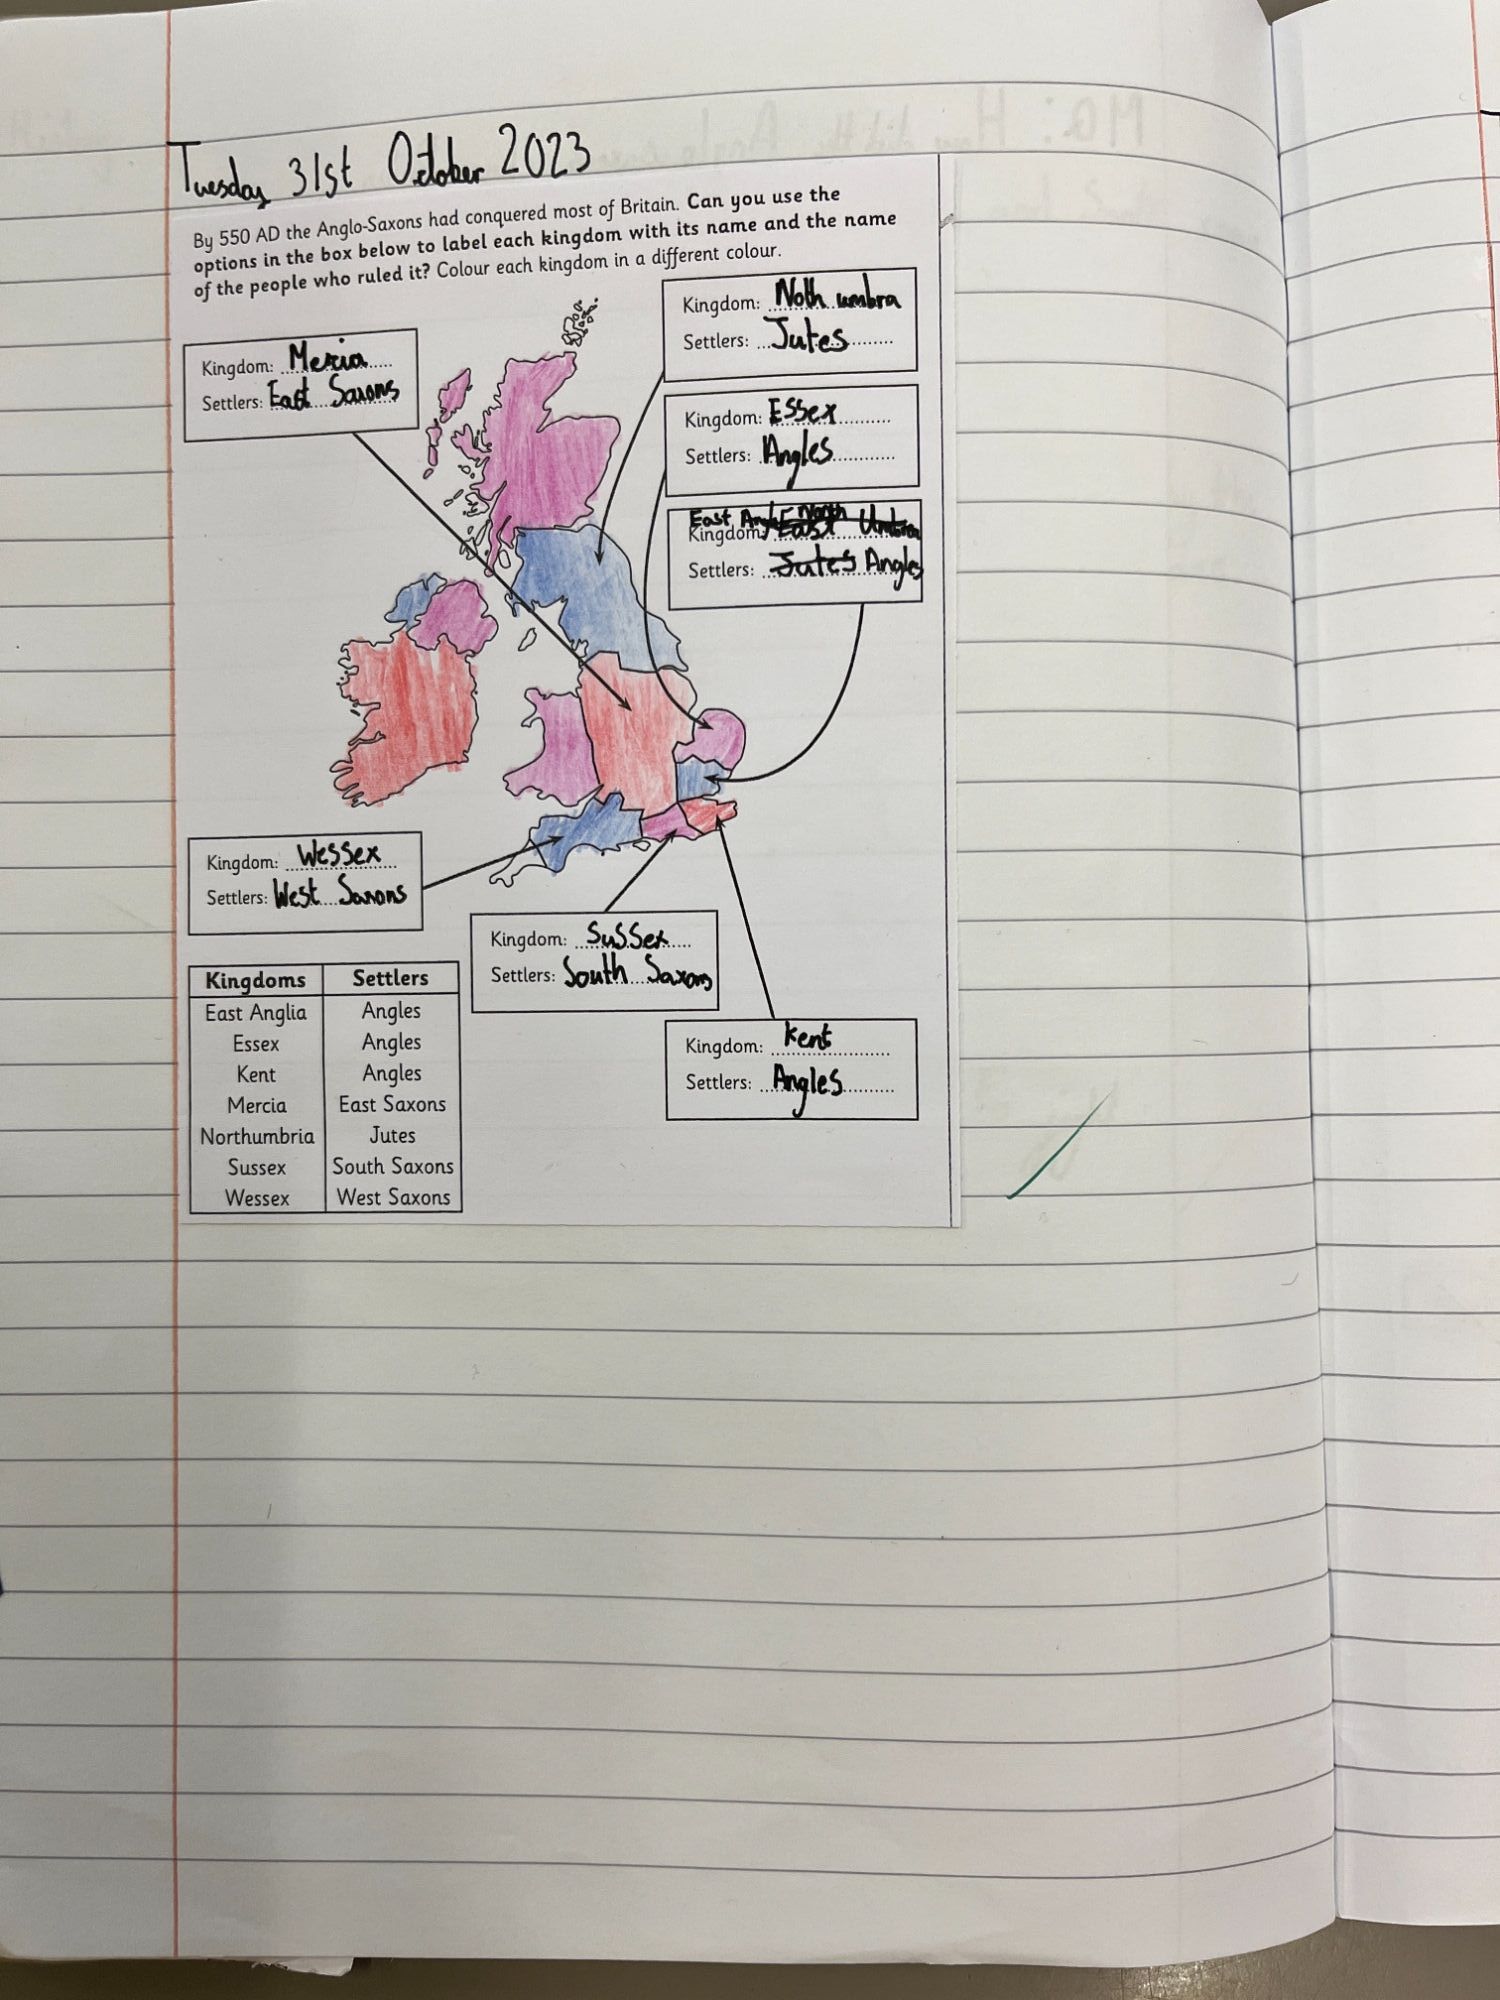 Tuesday 31st October 2023
By 550 AD the Anglo-Saxons had conquered most of Britain. Can you use the
options in the box below to label each kingdom with its name and the name
of the people who ruled it? Colour each kingdom in a different colour.
Kingdom: Noth umbra
Settlers: Jutes
Kingdom: Mercia
Settlers: East Saxons
Kingdom: Essex
Settlers: Angles
East North Umbra
Kingdom: East
Settlers: Jutes Angles
Kingdom: Wessex
Settlers: West Saxons
Kingdom: Sussex
Settlers: South Saxons
Kingdom: Kent
Settlers: Angles
Kingdoms Settlers
East Anglia Angles
Essex Angles
Kent Angles
Mercia East Saxons
Northumbria Jutes
Sussex South Saxons
Wessex West Saxons